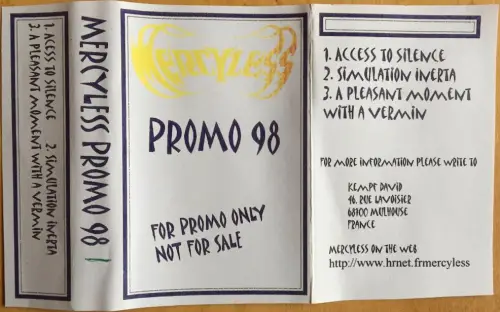 1. ACCESS TO SILENCE
2. SIMULATION INERTA
3. A PLEASANT MOMENT
WITH A VERMIN
MERCYLESS PROMO 98
MERCYLESS
PROMO 98
FOR PROMO ONLY
NOT FOR SALE
1. ACCESS TO SILENCE
2. SIMULATION INERTA
3. A PLEASANT MOMENT
WITH A VERMIN
FOR MORE INFORMATION PLEASE WRITE TO
KEMPF DAVID
46, RUE LAVOISIER
68100 MULHOUSE
FRANCE
MERCYLESS ON THE WEB
http://www.hrnet.frmercyless